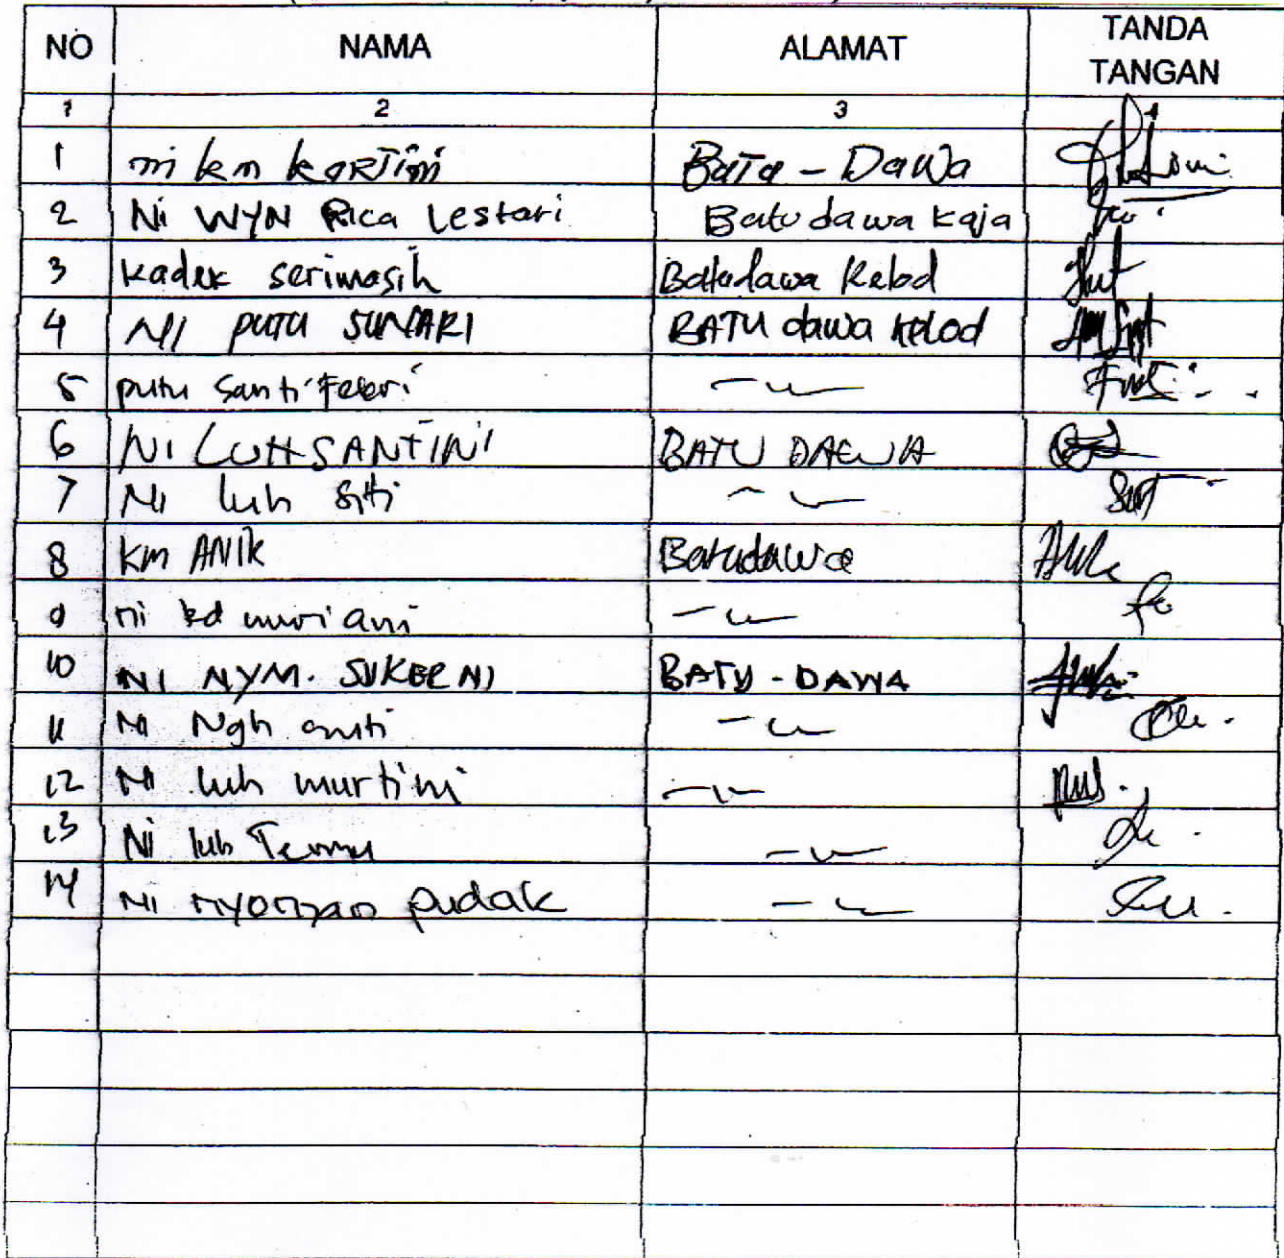 NO NAMA ALAMAT TANDA TANGAN
1 2 3 4
1 ni km kaRTini BaTa - Dawa
2 Ni WYN Rica Lestari Batu dawa kaja
3 kadek serimasih Batudawa Kelod
4 NI PUTU SUNTARI BATU dawa kelod
5 putu Santi Febri
6 NI LUH SANTINI BATU DAEWA
7 Ni luh Siti
8 km ANIK Batudawa
9 ni kd muriani
10 NI NYM. SUKERNI BATU - DAWA
11 Ni Ngh
12 Ni luh murtini
13 Ni luh
14 Ni nyoman pudak